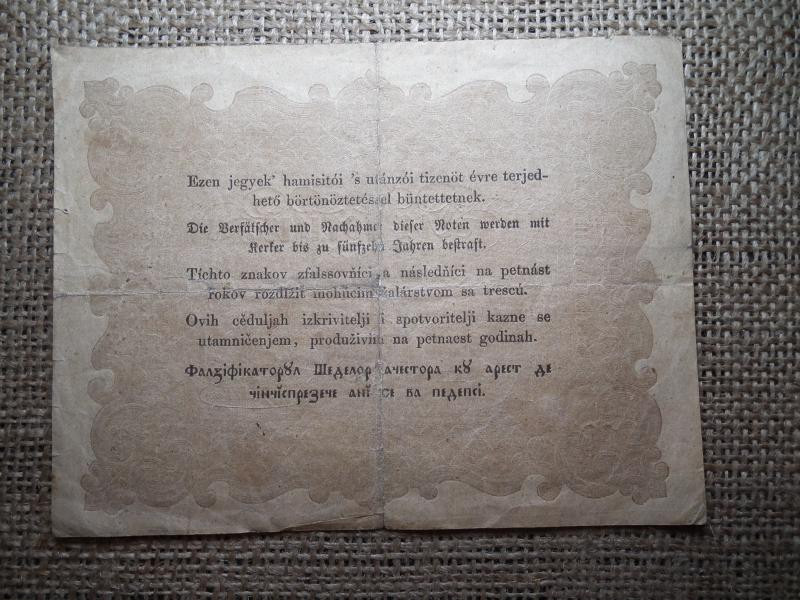 Ezen jegyek' hamisitói 's utánzói tizenöt évre terjed-
hető börtönöztetéssel büntettetnek.
Die Verfälscher und Nachahmer dieser Noten werden mit
Kerker bis zu fünfzehn Jahren bestraft.
Tíchto znakov zfalssovňíci a následňíci na petnást
rokov rozdĺžiť mohúcim žalárstvom sa trescú.
Ovih cěduljah izkrivitelji i spotvoritelji kazne se
utamničenjem, produživim na petnaest godinah.
Фалꙁіфікаторꙋл Шеделор ачестора кꙋ арест де
чінчіспреꙁече анї се ва педепсі.